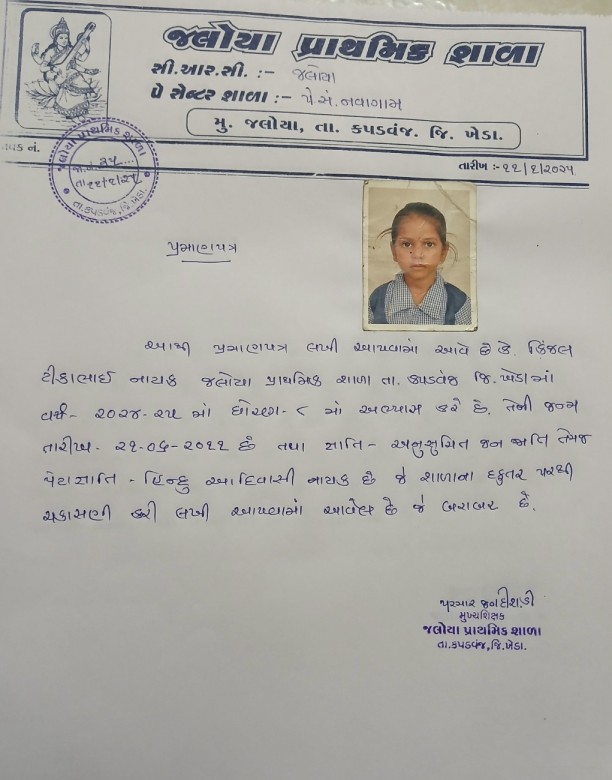 જલોયા પ્રાથમિક શાળા
સી.આર.સી. :- જલોયા
પે સેન્ટર શાળા :- પે.સે.નવાગામ
મુ. જલોયા, તા. કપડવંજ. જિ. ખેડા.
વક નં.
જલોયા પ્રાથમિક શાળા
તા.કપડવંજ, જિ.ખેડા.
તારીખ :- ૧૧/૬/૨૦૨૫
પ્રમાણપત્ર
આથી પ્રમાણપત્ર લખી આપવામાં આવે છે કે. કિંજલ
ટીકાભાઈ નાયક જલોયા પ્રાથમિક શાળા તા. કપડવંજ જિ.ખેડામાં
વર્ષ- ૨૦૨૪-૨૫ માં ધોરણ- ૮ માં અભ્યાસ કરે છે. તેની જન્મ
તારીખ- ૨૧-૦૬-૨૦૧૧ છે તથા જાતિ - અનુસુચિત જન જાતિ તેમજ
પેટાજાતિ - હિન્દુ આદિવાસી નાયક છે જે શાળાના દફતર પરથી
ચકાસણી કરી લખી આપવામાં આવેલ છે જે બરાબર છે.
પરમાર જગદીશ.ડી
મુખ્યશિક્ષક
જલોયા પ્રાથમિક શાળા
તા.કપડવંજ,જિ.ખેડા.